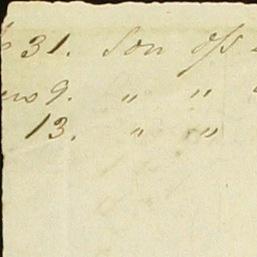 31. Son o/s
9. " "
13. " "